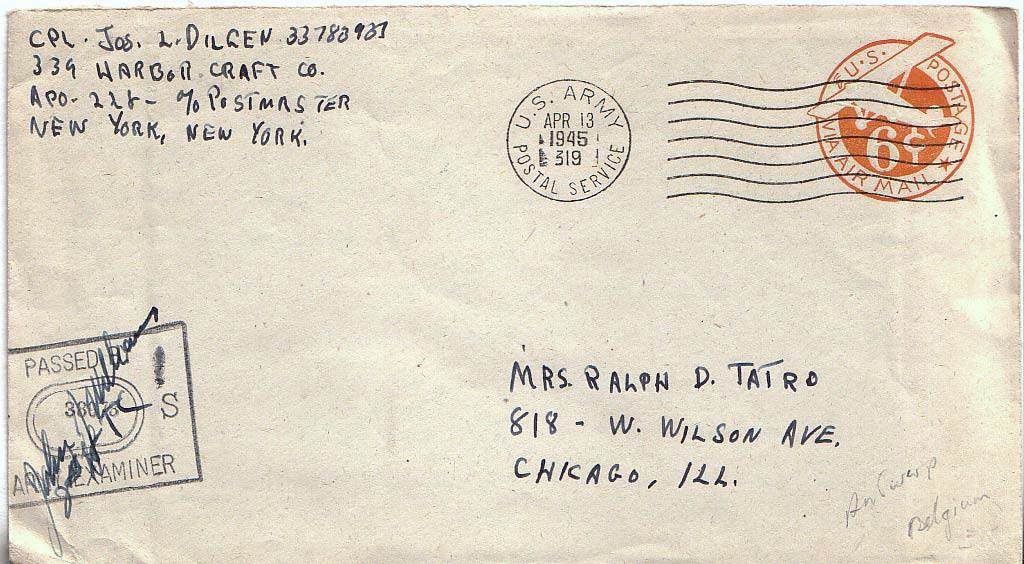 CPL. Jos. L. DILGEN 33783937
339 HARBOR CRAFT CO.
APO-228- c/o POSTMASTER
NEW YORK, NEW YORK.
U.S. ARMY
APR 13
1945
319
POSTAL SERVICE
U.S. POSTAGE
6¢
VIA AIR MAIL
PASSED
S
EXAMINER
MRS. RALPH D. TATRO
818 - W. WILSON AVE.
CHICAGO, ILL.
Antwerp
Belgium